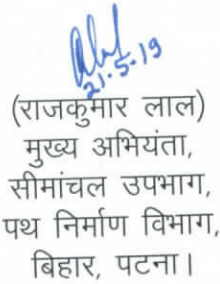 21.5.19
(राजकुमार लाल)
मुख्य अभियंता,
सीमांचल उपभाग,
पथ निर्माण विभाग,
बिहार, पटना।